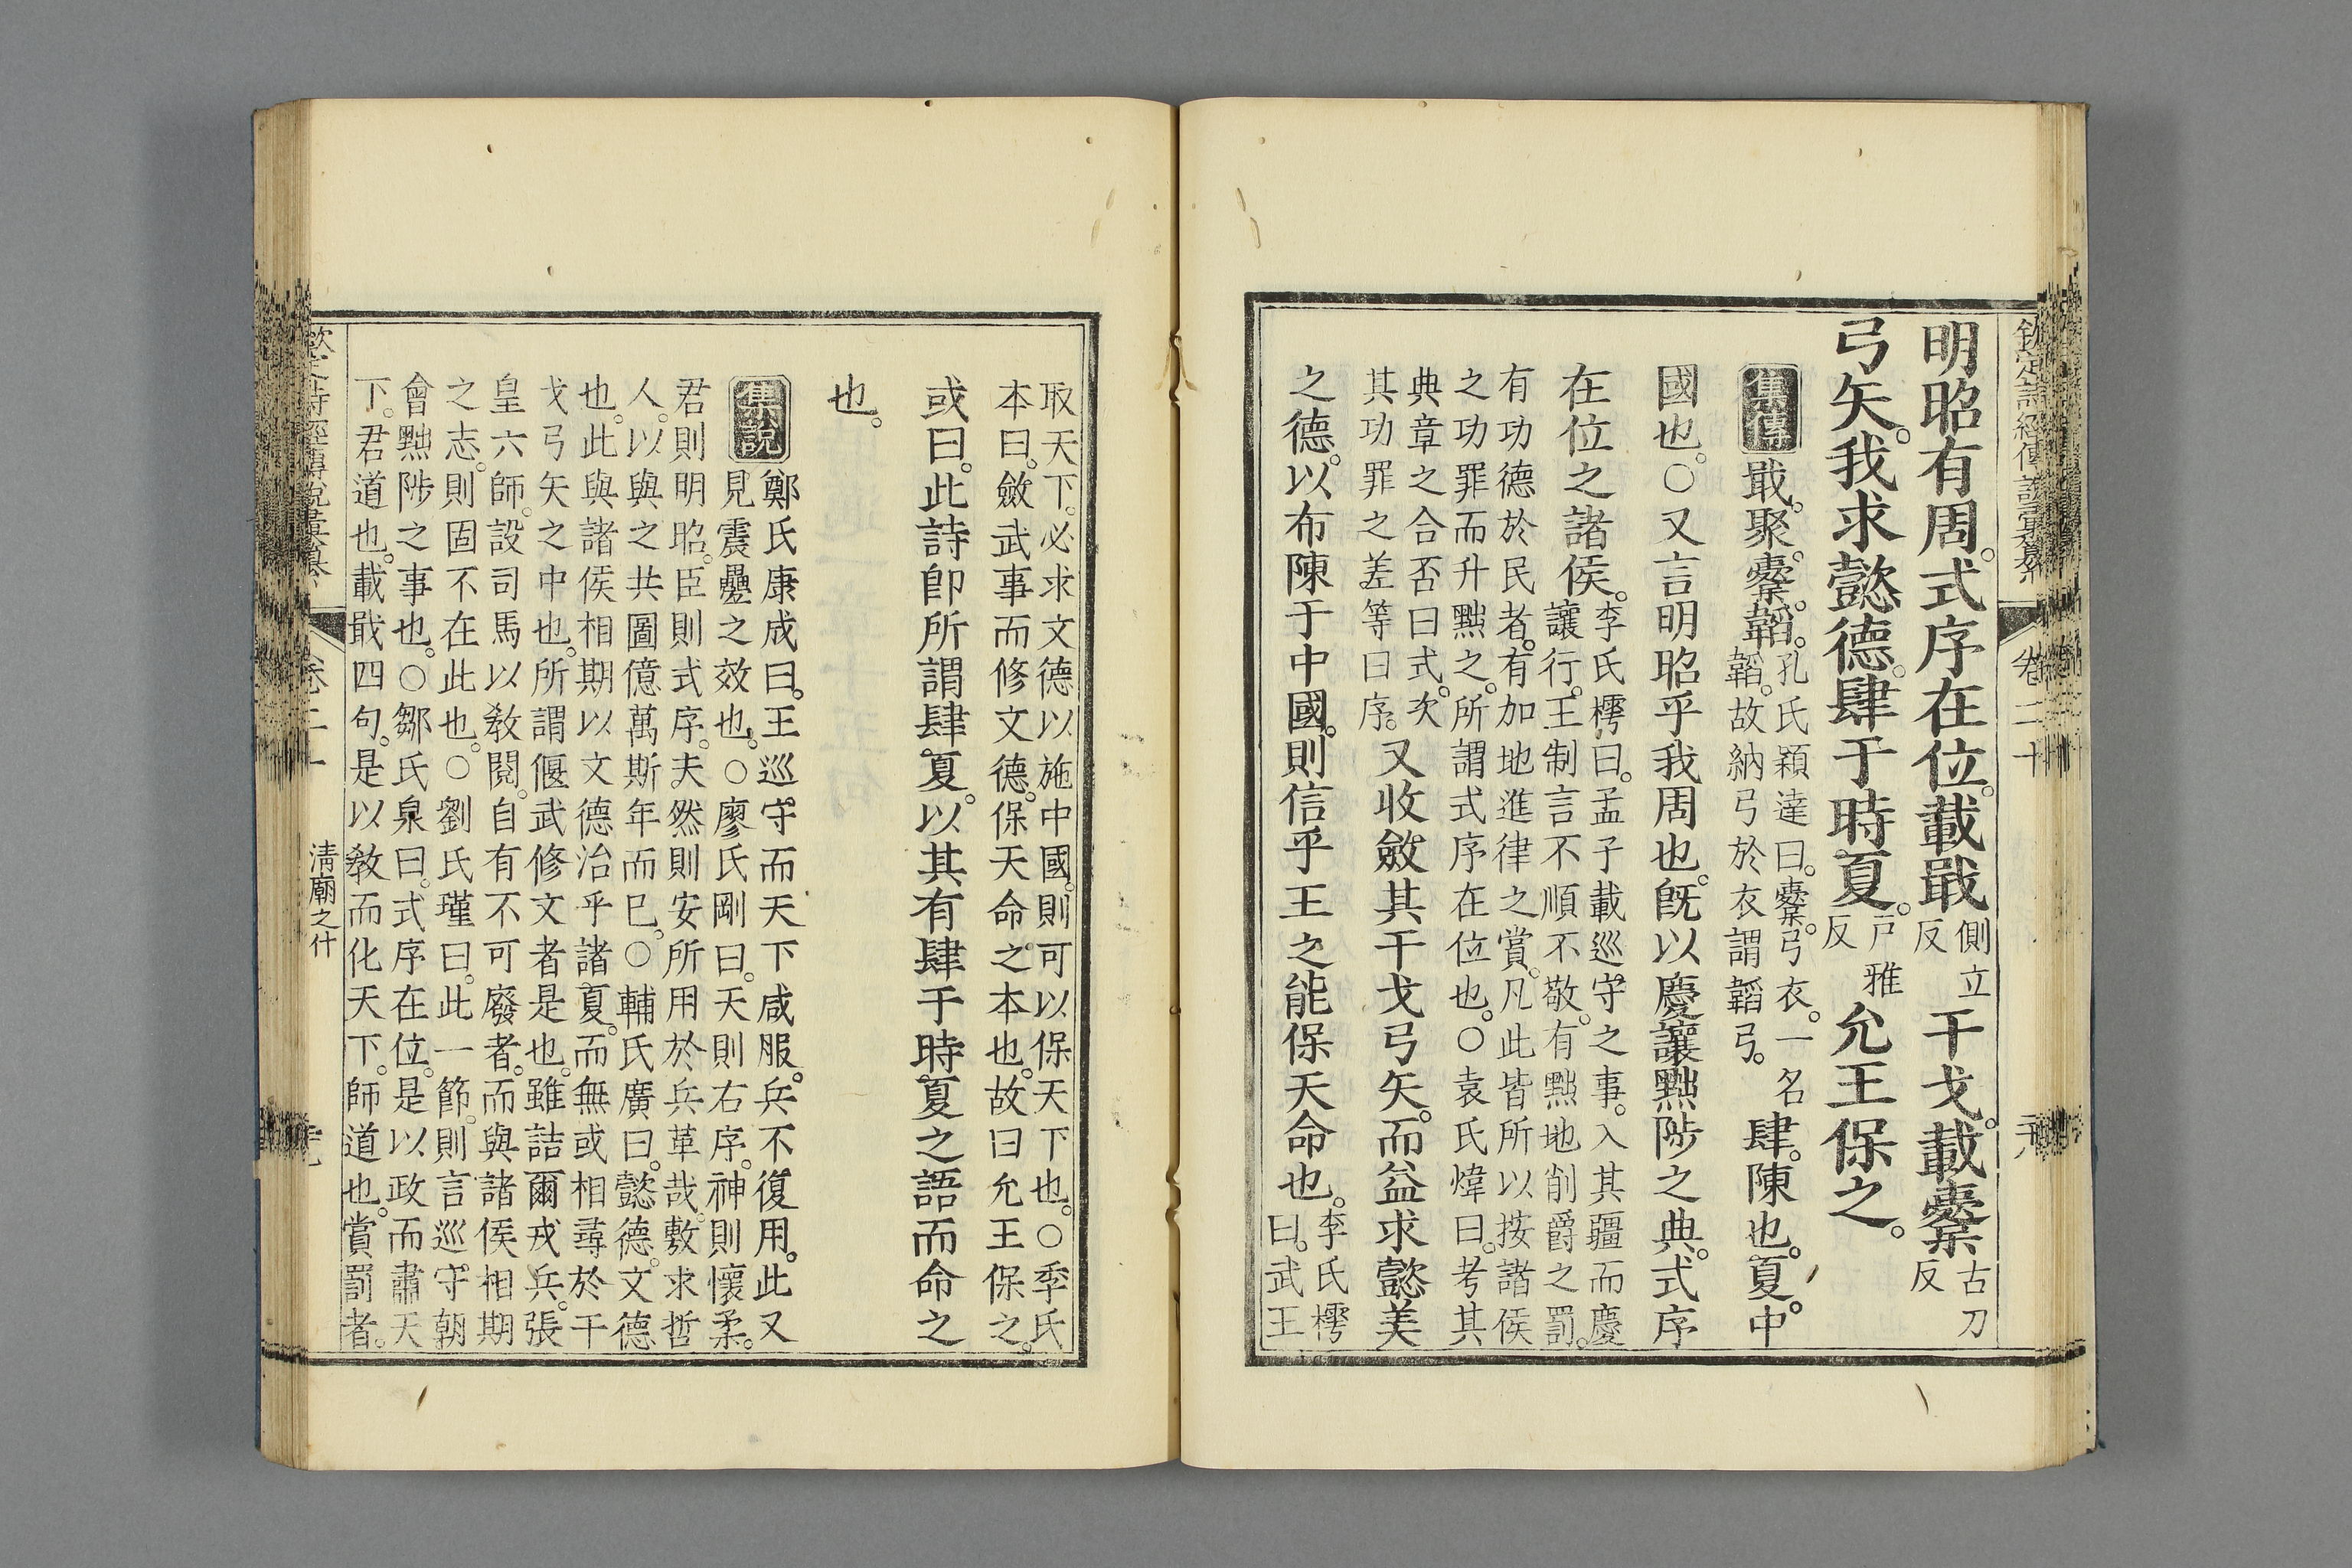 欽定詩經傳說彙纂 卷二十
明昭有周。式序在位。載戢側立反干戈。載櫜古刀反
弓矢。我求懿德。肆于時夏。戸雅反允王保之。
集傳 戢。聚。櫜。韜。孔氏穎達曰。櫜。弓衣。一名韜。故納弓於衣謂韜弓。肆。陳也。夏。中
國也。○又言明昭乎我周也。旣以慶讓黜陟之典。式序
在位之諸侯。李氏樗曰。孟子載巡守之事。入其疆而慶讓行。王制言不順不敬。有黜地削爵之罰。
有功德於民者。有加地進律之賞。凡此皆所以按諸侯
之功罪而升黜之。所謂式序在位也。○袁氏煒曰。考其
典章之合否曰式。次其功罪之差等曰序。又收斂其干戈弓矢。而益求懿美
之德。以布陳于中國。則信乎王之能保天命也。李氏樗曰。武王
取天下。必求文德以施中國。則可以保天下也。○季氏
本曰。斂武事而修文德。保天命之本也。故曰允王保之。
或曰。此詩卽所謂肆夏。以其有肆于時夏之語而命之
也。
集說 鄭氏康成曰。王巡守而天下咸服。兵不復用。此又
見震疊之效也。○廖氏剛曰。天則右序。神則懷柔。
君則明昭。臣則式序。夫然則安所用於兵革哉。敷求哲
人。以與之共圖億萬斯年而已。○輔氏廣曰。懿德。文德
也。此與諸侯相期以文德治乎諸夏。而無或相尋於干
戈弓矢之中也。所謂偃武修文者是也。雖詰爾戎兵。張
皇六師。設司馬以敎閱。自有不可廢者。而與諸侯相期
之志。則固不在此也。○劉氏瑾曰。此一節。則言巡守。朝
會黜陟之事也。○鄒氏泉曰。式序在位。是以政而肅天
下。君道也。載戢四句。是以敎而化天下。師道也。賞罰者。
欽定詩經傳說彙纂 卷二十 清廟之什